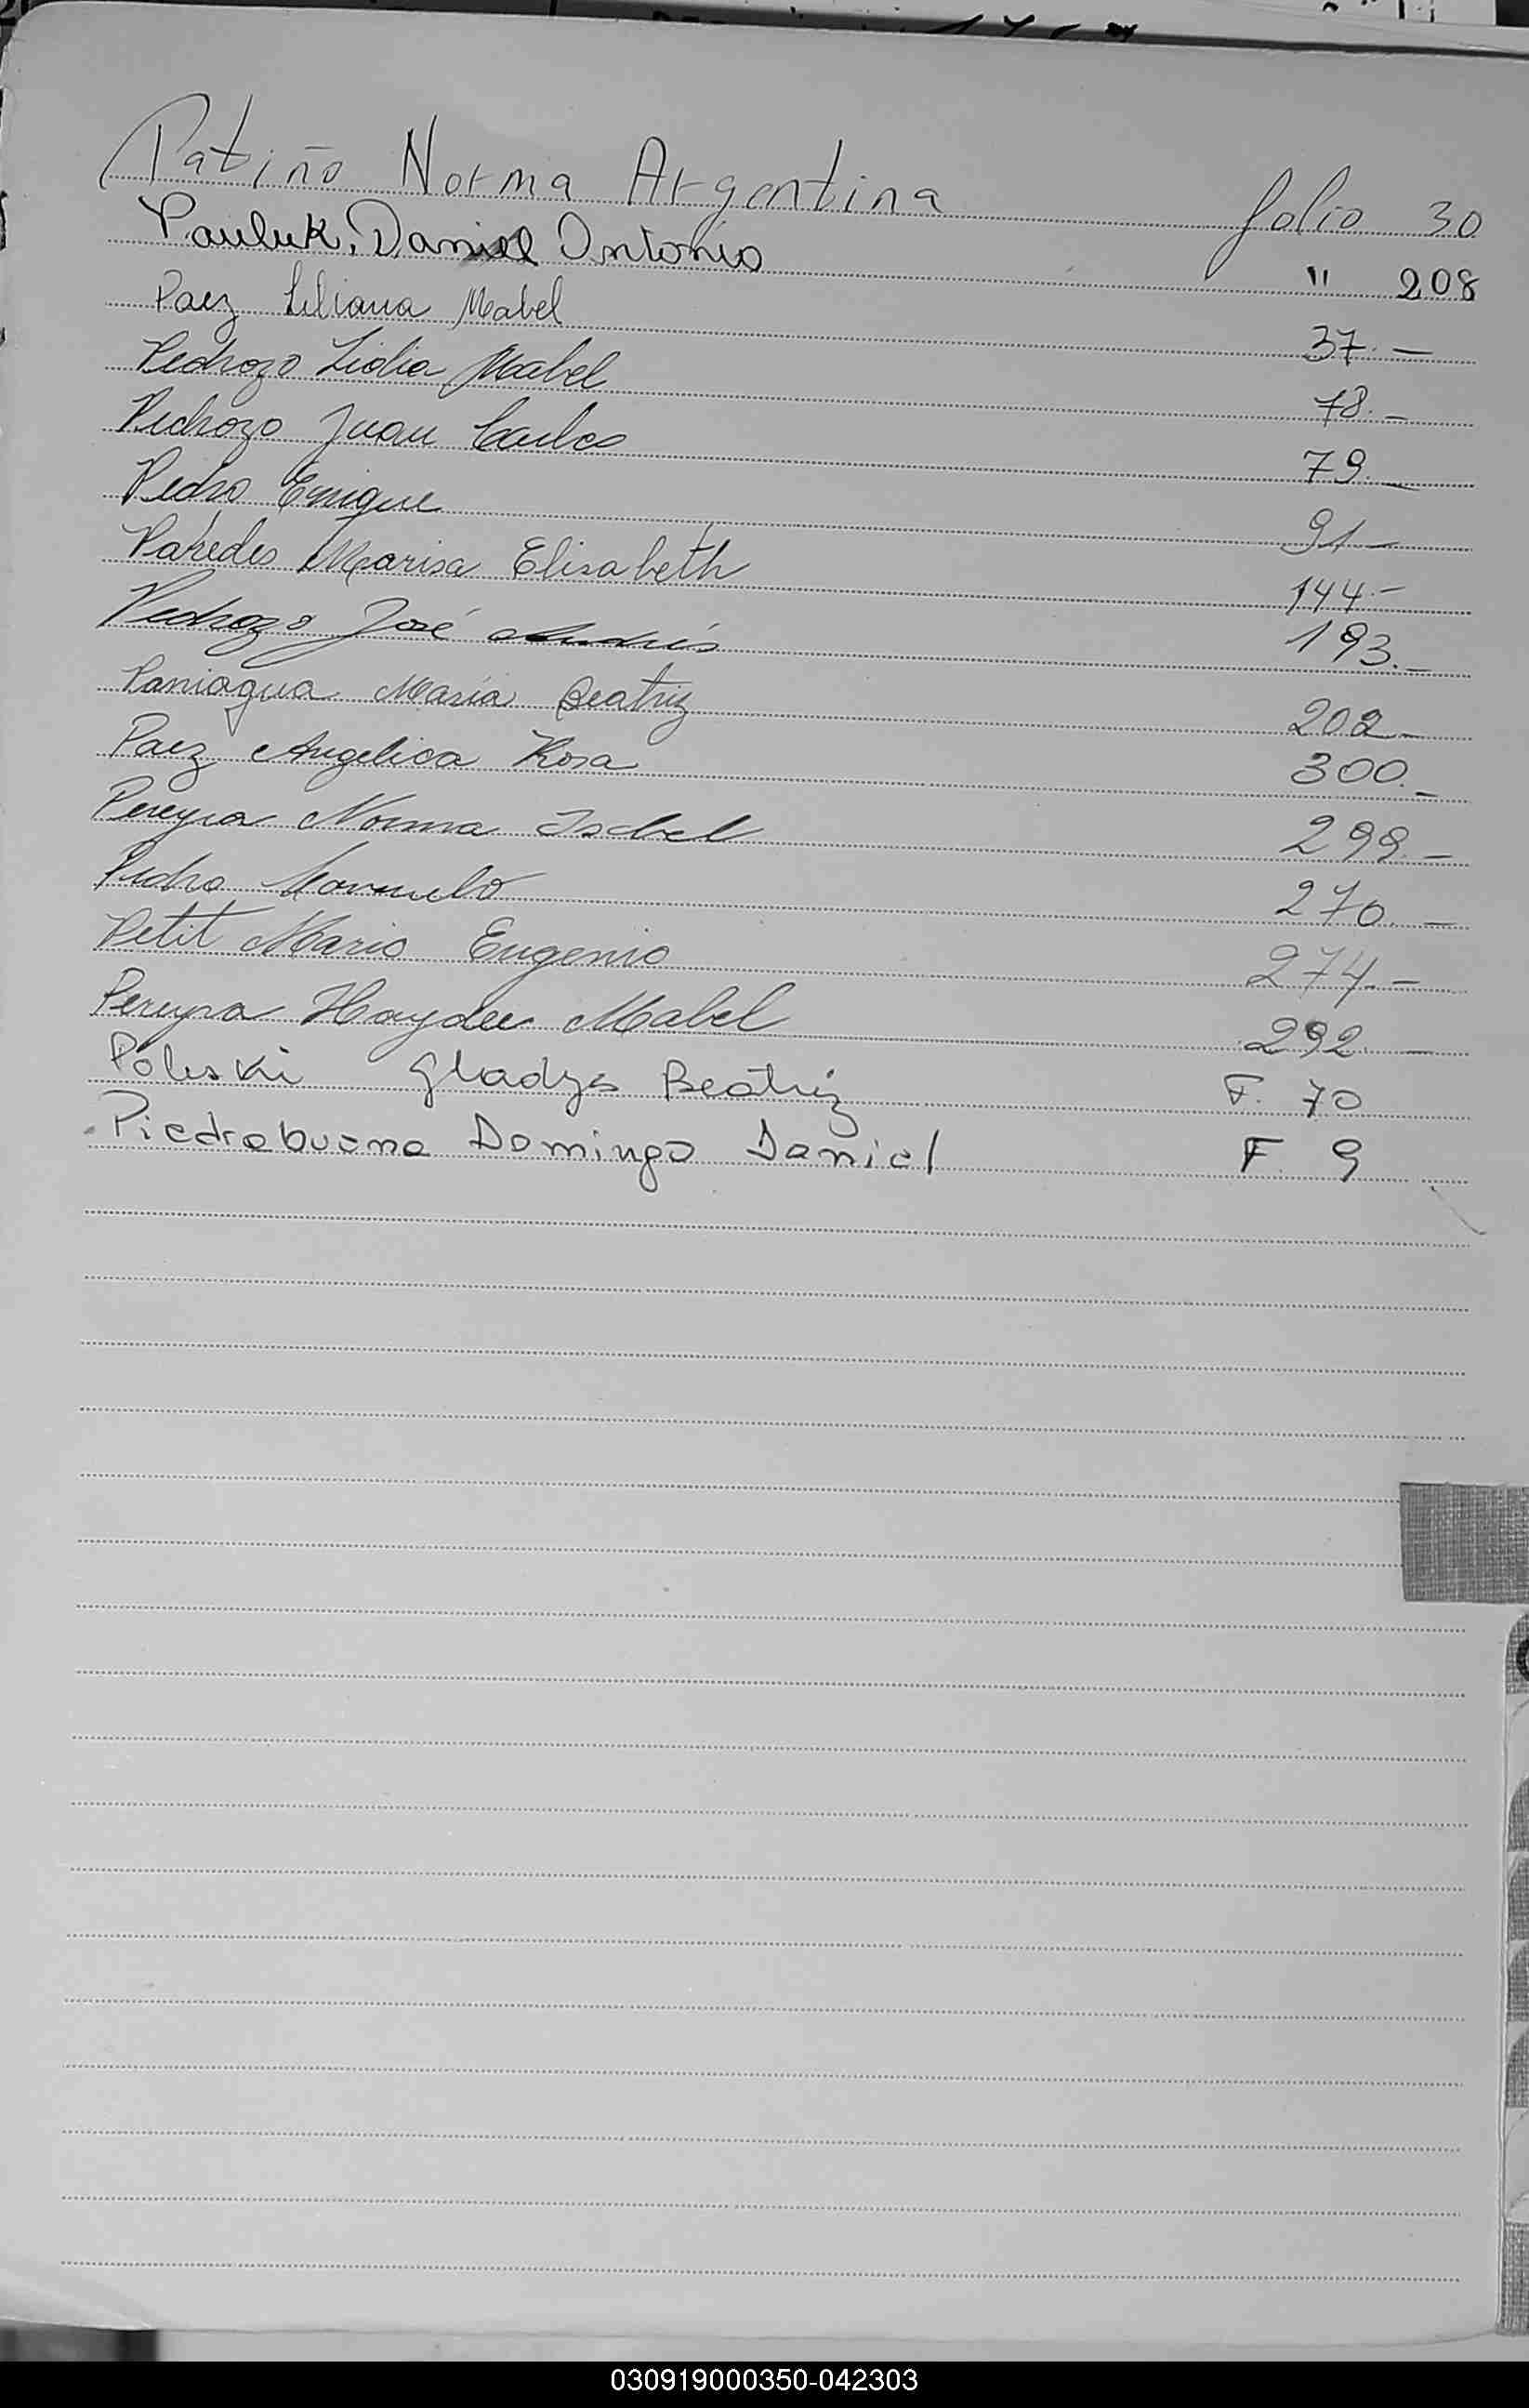 Patiño Norma Argentina folio 30
Pauluk, Daniel Antonio " 208
Paez Liliana Mabel 37.—
Pedrozo Lidia Mabel 78.—
Pedrozo Juan Carlos 79.—
Pedro Enrique 91—
Paredes Marisa Elisabeth 144.—
Pedrozo José Andrés 193.—
Paniagua María Beatriz 202—
Paez Angelica Rosa 300.—
Pereyra Norma Isabel 299.—
Pedro 270.—
Petit Mario Eugenio 274.—
Pereyra Haydee Mabel 292.—
Poleski Gladys Beatriz F. 70
Piedrabuena Domingo Daniel F. 9
030919000350-042303